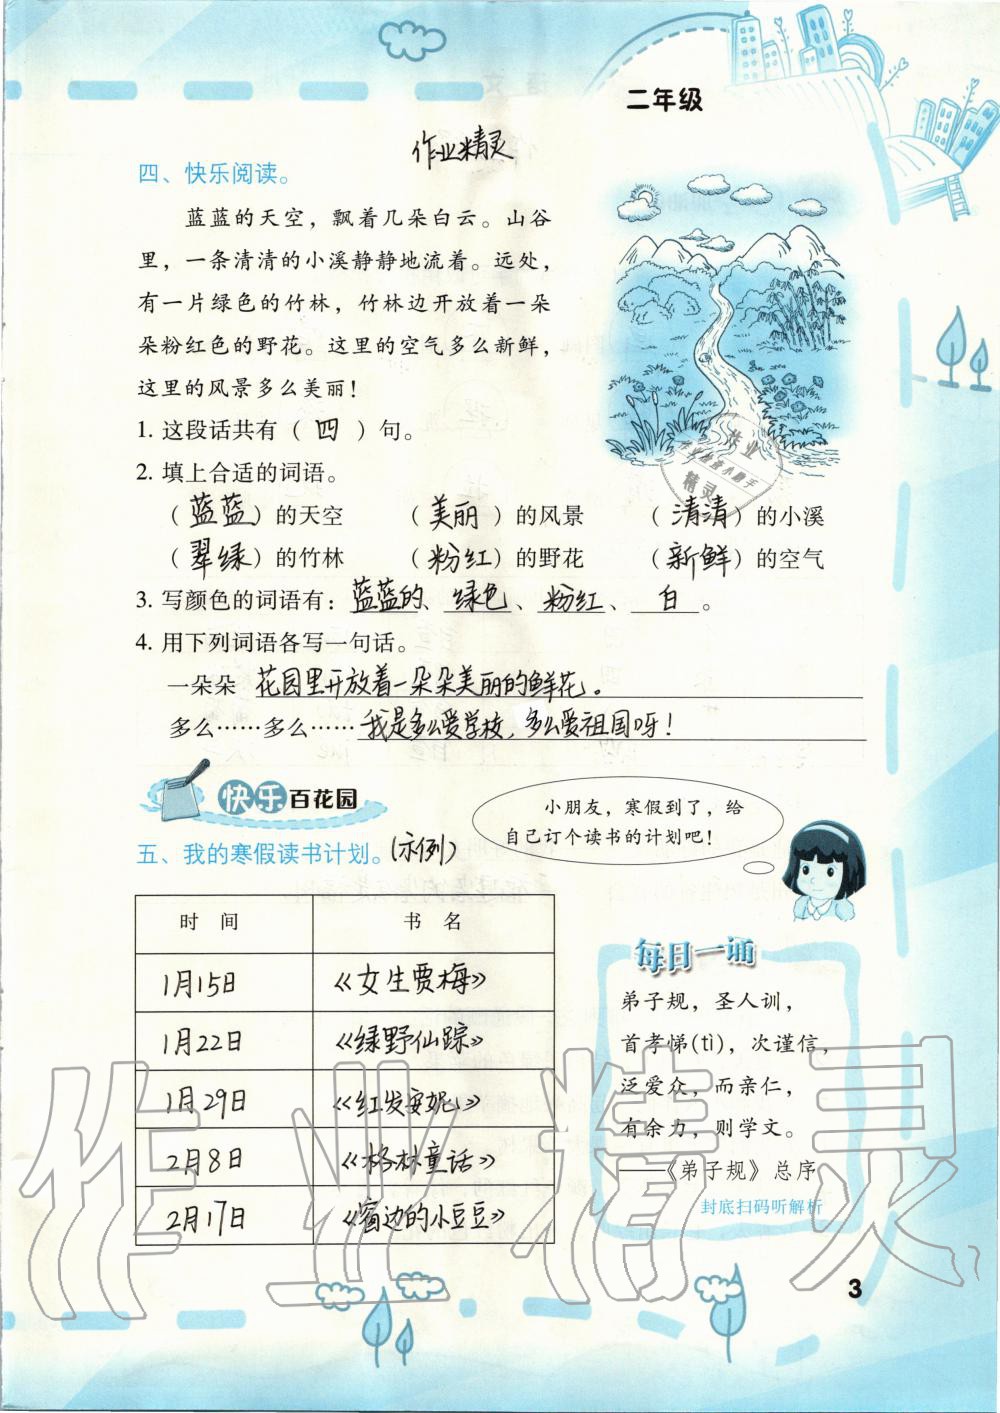 二年级
作业精灵
四、快乐阅读。
蓝蓝的天空，飘着几朵白云。山谷
里，一条清清的小溪静静地流着。远处，
有一片绿色的竹林，竹林边开放着一朵
朵粉红色的野花。这里的空气多么新鲜，
这里的风景多么美丽！
1. 这段话共有（ 四 ）句。
2. 填上合适的词语。
（ 蓝蓝 ）的天空 （ 美丽 ）的风景 （ 清清 ）的小溪
（ 翠绿 ）的竹林 （ 粉红 ）的野花 （ 新鲜 ）的空气
3. 写颜色的词语有：蓝蓝的、绿色、粉红、白。
4. 用下列词语各写一句话。
一朵朵 花园里开放着一朵朵美丽的鲜花。
多么……多么…… 我是多么爱学校，多么爱祖国呀！
快乐百花园
小朋友，寒假到了，给
自己订个读书的计划吧！
五、我的寒假读书计划。（示例）
时 间 书 名
1月15日 《女生贾梅》
1月22日 《绿野仙踪》
1月29日 《红发安妮》
2月8日 《格林童话》
2月17日 《窗边的小豆豆》
每日一诵
弟子规，圣人训，
首孝悌(tì)，次谨信，
泛爱众，而亲仁，
有余力，则学文。
——《弟子规》总序
封底扫码听解析
3
作业精灵